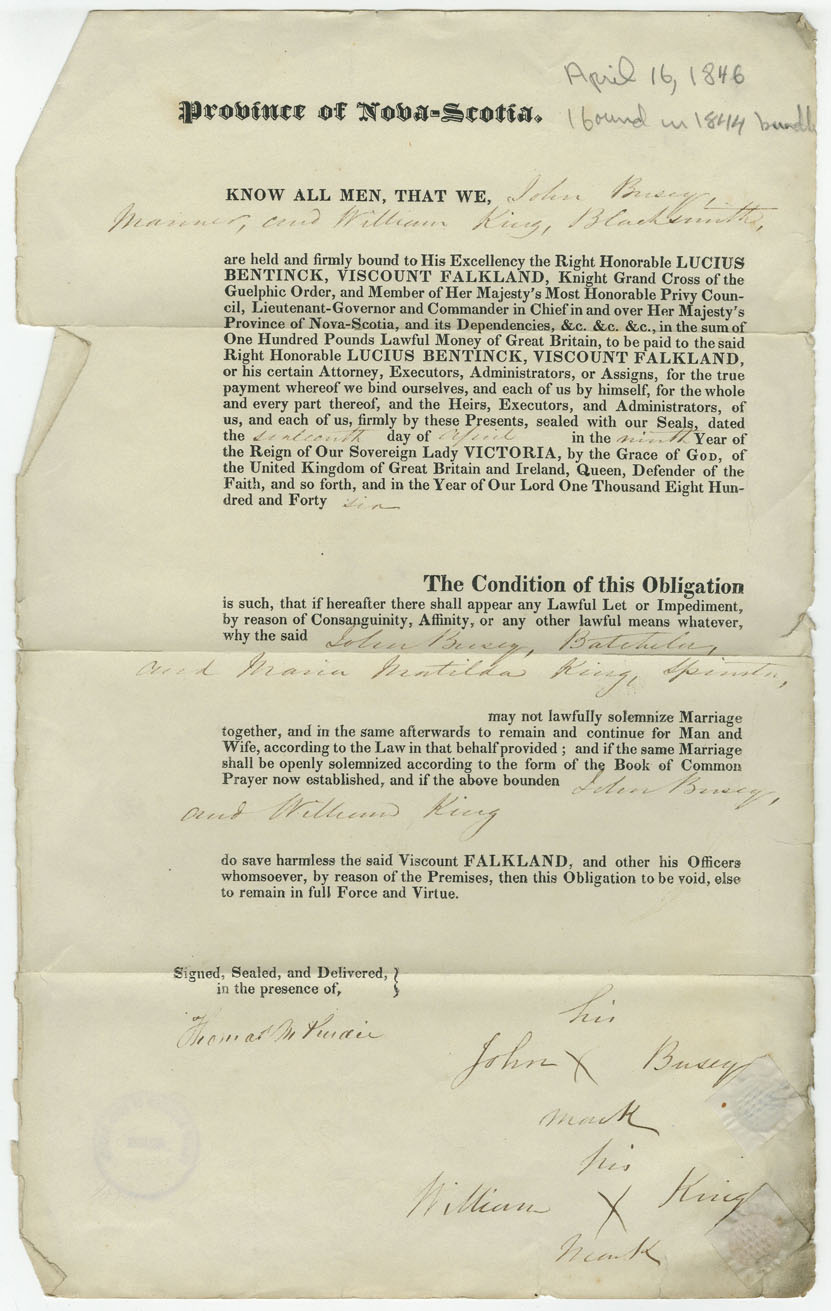 April 16, 1846
Province of Nova-Scotia.
found in 1844 bundle
KNOW ALL MEN, THAT WE, John Busey,
Marriner, and William King, Blacksmith,
are held and firmly bound to His Excellency the Right Honorable LUCIUS
BENTINCK, VISCOUNT FALKLAND, Knight Grand Cross of the
Guelphic Order, and Member of Her Majesty's Most Honorable Privy Coun-
cil, Lieutenant-Governor and Commander in Chief in and over Her Majesty's
Province of Nova-Scotia, and its Dependencies, &c. &c. &c., in the sum of
One Hundred Pounds Lawful Money of Great Britain, to be paid to the said
Right Honorable LUCIUS BENTINCK, VISCOUNT FALKLAND,
or his certain Attorney, Executors, Administrators, or Assigns, for the true
payment whereof we bind ourselves, and each of us by himself, for the whole
and every part thereof, and the Heirs, Executors, and Administrators, of
us, and each of us, firmly by these Presents, sealed with our Seals, dated
the sixteenth day of April in the ninth Year of
the Reign of Our Sovereign Lady VICTORIA, by the Grace of GOD, of
the United Kingdom of Great Britain and Ireland, Queen, Defender of the
Faith, and so forth, and in the Year of Our Lord One Thousand Eight Hun-
dred and Forty six
The Condition of this Obligation
is such, that if hereafter there shall appear any Lawful Let or Impediment,
by reason of Consanguinity, Affinity, or any other lawful means whatever,
why the said John Busey, Batchelor,
and Maria Matilda King, Spinster,
may not lawfully solemnize Marriage
together, and in the same afterwards to remain and continue for Man and
Wife, according to the Law in that behalf provided ; and if the same Marriage
shall be openly solemnized according to the form of the Book of Common
Prayer now established, and if the above bounden John Busey,
and William King
do save harmless the said Viscount FALKLAND, and other his Officers
whomsoever, by reason of the Premises, then this Obligation to be void, else
to remain in full Force and Virtue.
Signed, Sealed, and Delivered, }
in the presence of,
Thomas
his
John X Busey
mark
his
William X King
mark